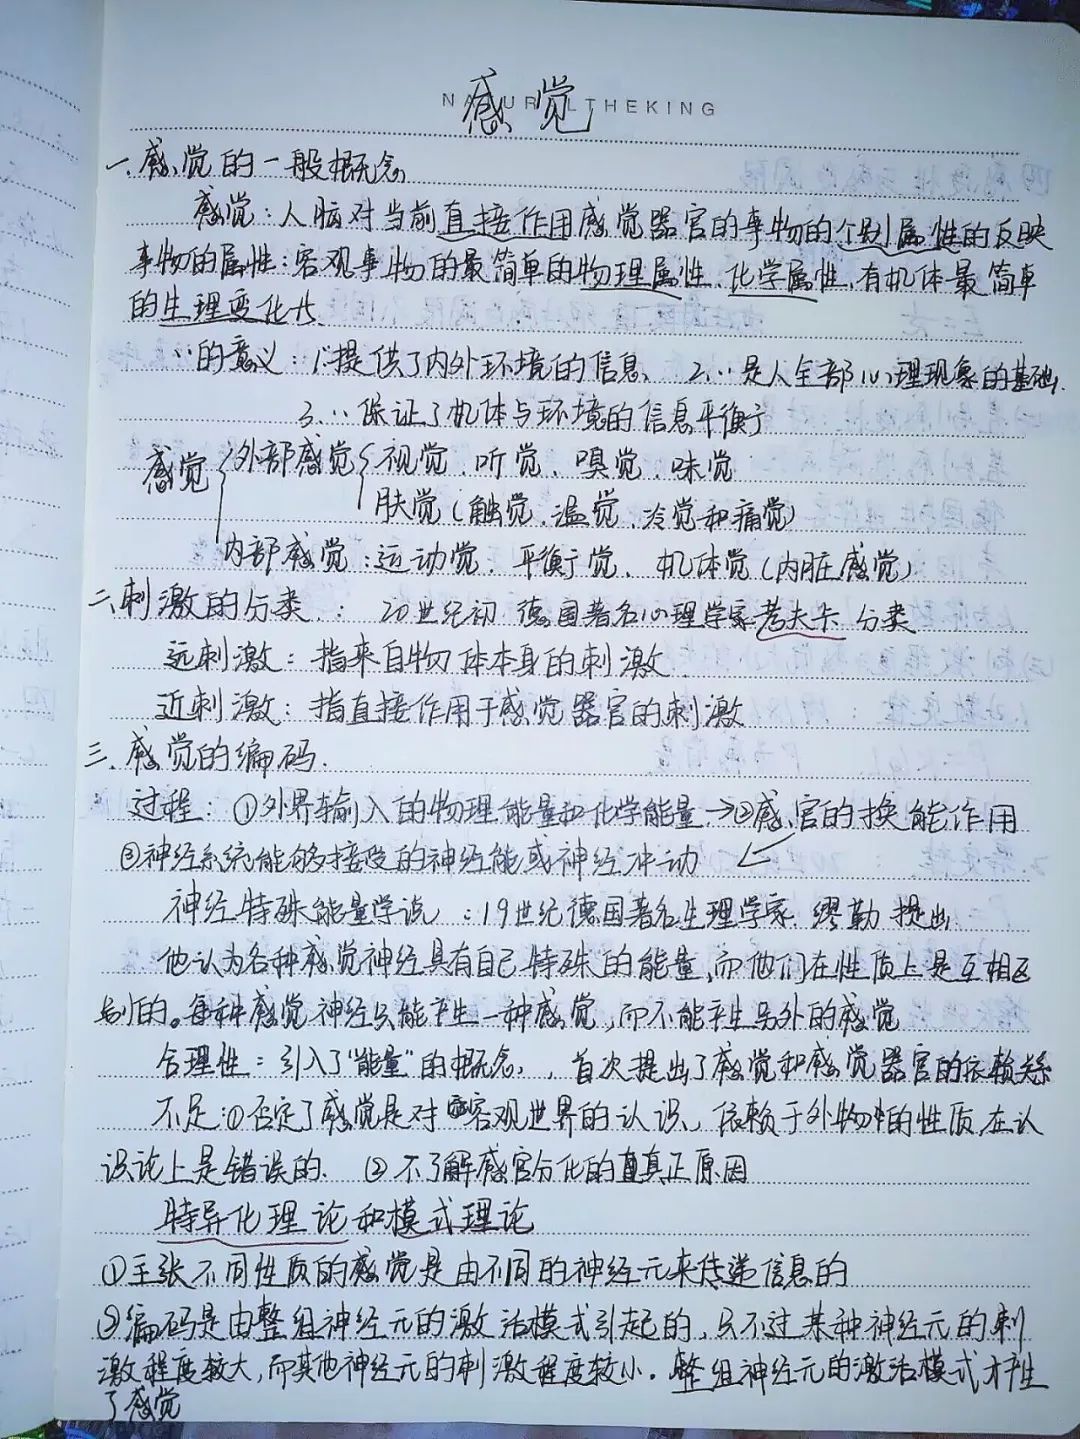 NATURALTHEKING
感觉
一.感觉的一般概念
感觉:人脑对当前直接作用感觉器官的事物的个别属性的反映
事物的属性:客观事物的最简单的物理属性、化学属性、有机体最简单
的生理变化
∵的意义:1.提供了内外环境的信息、 2.∵是人全部心理现象的基础.
3.∵保证了机体与环境的信息平衡
感觉 外部感觉 视觉、听觉、嗅觉、味觉
肤觉(触觉、温觉、冷觉和痛觉)
内部感觉:运动觉、平衡觉、机体觉(内脏感觉)
二.刺激的分类:20世纪初 德国著名心理学家考夫卡分类
远刺激:指来自物体本身的刺激
近刺激:指直接作用于感觉器官的刺激
三.感觉的编码.
过程:①外界输入的物理能量和化学能量→②感官的换能作用
③神经系统能够接受的神经能或神经冲动
神经特殊能量学说:19世纪德国著名生理学家 缪勒提出
他认为各种感觉神经具有自己特殊的能量,而他们在性质上是互相区
别的。每种感觉神经只能产生一种感觉,而不能产生另外的感觉
合理性:引入了“能量”的概念,,首次提出了感觉和感觉器官的依赖关系
不足:①否定了感觉是对客观世界的认识、依赖于外物中的性质,在认
识论上是错误的. ②不了解感官分化的真正原因
特异化理论和模式理论
①主张不同性质的感觉是由不同的神经元来传递信息的
②编码是由整组神经元的激活模式引起的,只不过某种神经元的刺
激程度较大,而其他神经元的刺激程度较小。整组神经元的激活模式才产生
了感觉